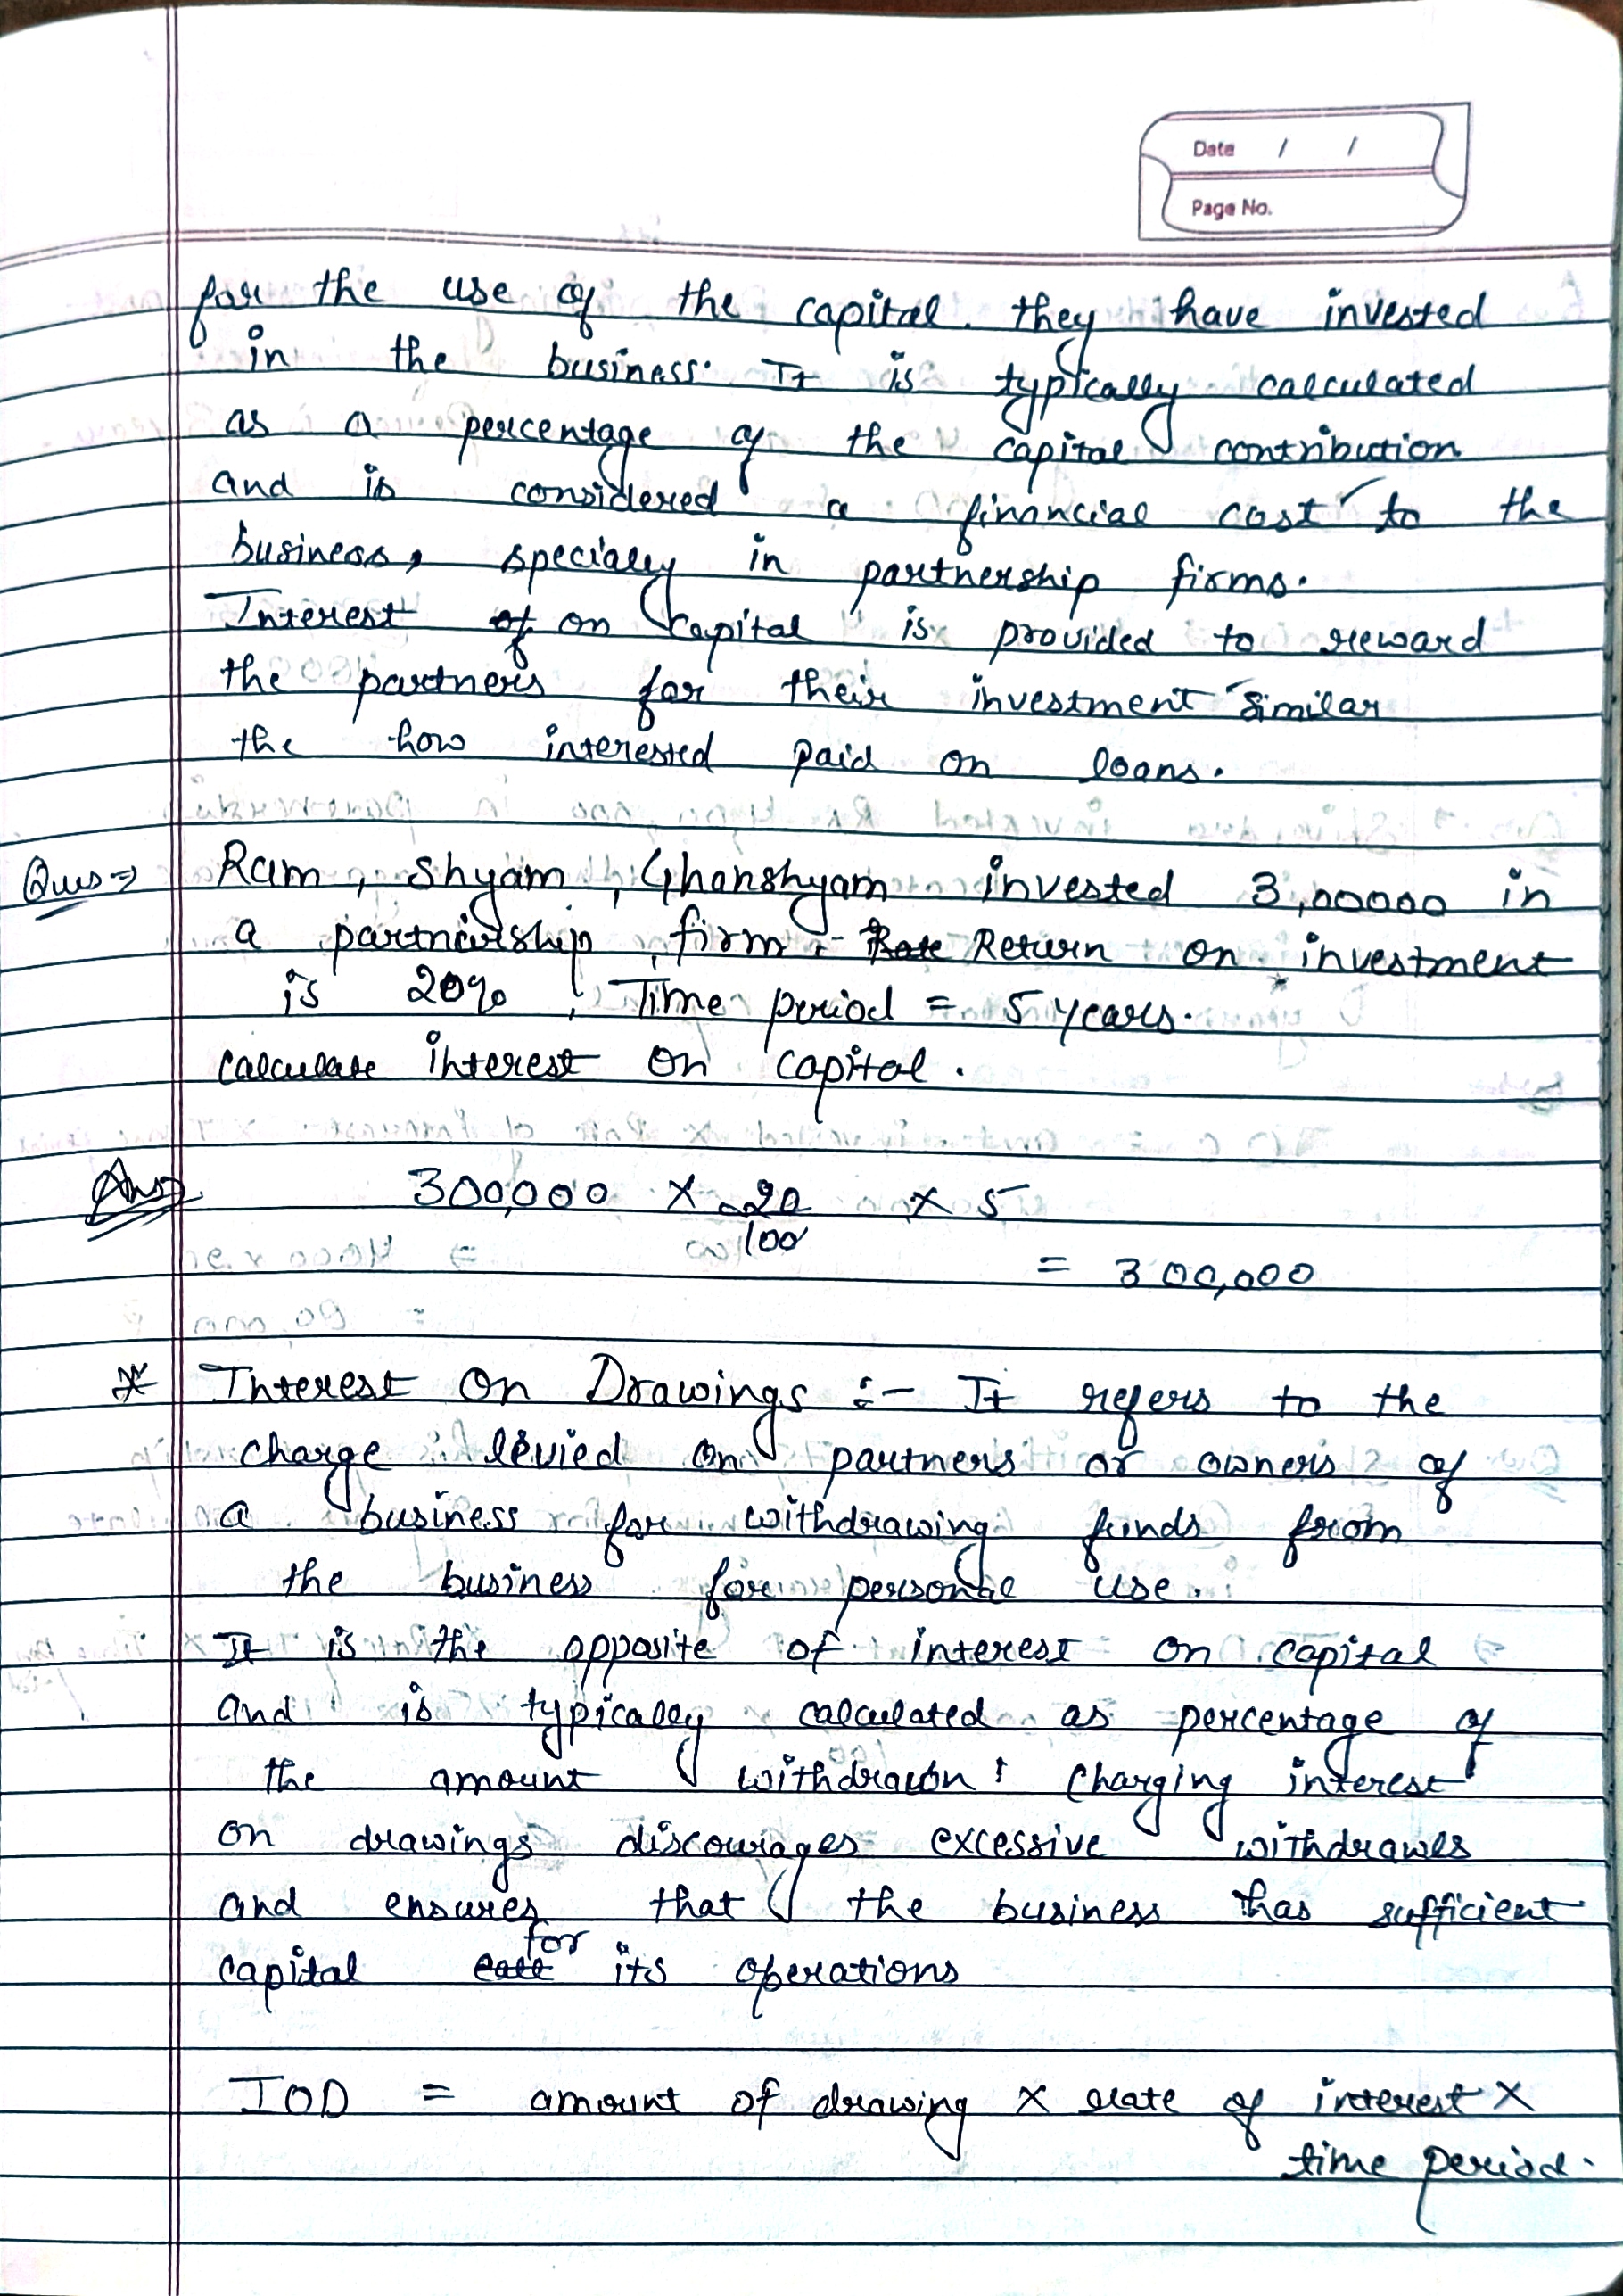 Date / /
Page No.
for the use of the capital. they have invested
in the business. It is typically calculated
as a percentage of the capital contribution
and is considered a financial cost to the
business, specially in partnership firms.
Interest of on Capital is provided to reward
the partners for their investment similar
the how interested paid on loans.
Ques ⇒ Ram, Shyam, Ghanshyam invested 3,00000 in
a partnership firm - Rate Return on investment
is 20%, Time period = 5 years.
calculate interest on capital.
Ans 300,000 × 20/100 × 5
= 300,000
* Interest On Drawings :- It refers to the
charge levied on partners or owners of
a business for withdrawing funds from
the business for personal use.
It is the opposite of interest on capital
and is typically calculated as percentage of
the amount withdrawn. Charging interest
on drawings discourages excessive withdrawls
and ensures that the business has sufficient
capital for its operations
IOD = amount of drawing × rate of interest ×
time period.